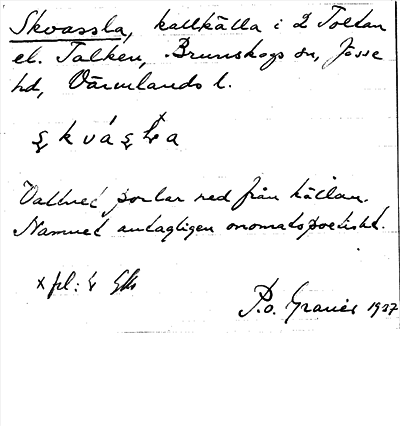 Skvassla, kallkälla i 2 Toltan
el. Talken, Brunskogs sn, Jösse
hd, Värmlands l.
Vattnet porlar ned från källan.
Namnet antagligen onomatopoetiskt.
P.o. Graner 1927